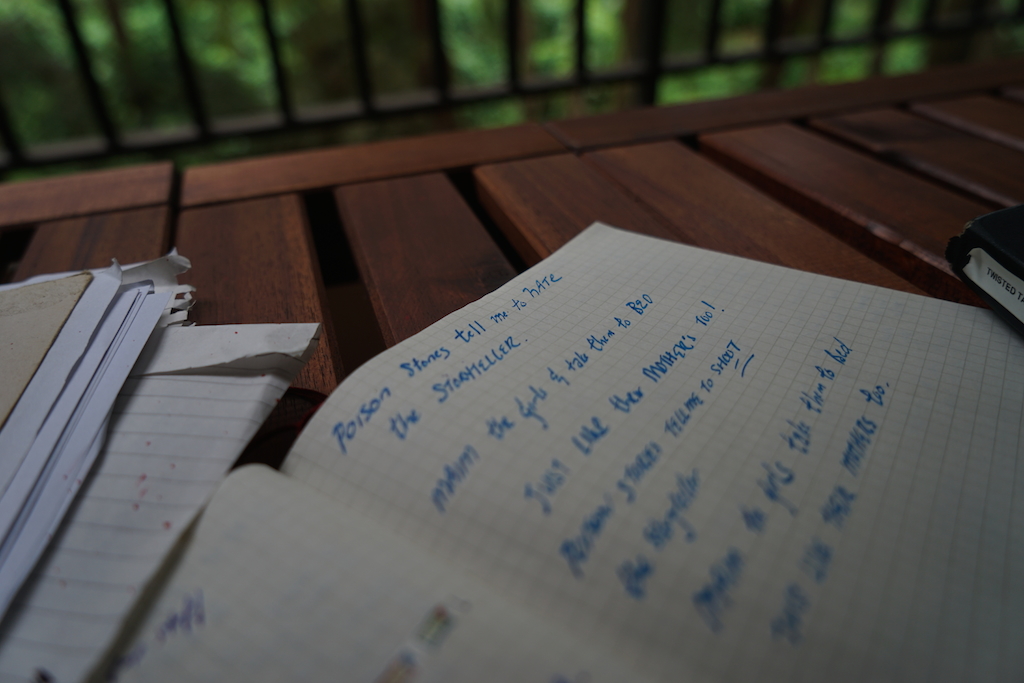 Poison Stories tell me to hATE
the STORYTELLER.
the girls & take them to BED
JUST LIKE their MOTHERS TOO!
POISON STORIES TELL ME TO SHOOT
the storyteller
the girls take them to bed
JUST LIKE THEIR MOTHERS TOO.
TWISTED TA